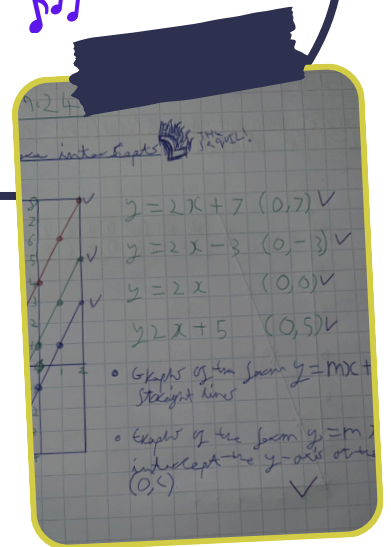 intercepts
y = 2x + 7 (0,7)
y = 2x - 3 (0,-3)
y = 2x (0,0)
y 2x + 5 (0,5)
• Graphs of the form y = mx +
straight lines
• Graphs of the form y = m
intercept the y-axis at the
(0,c)